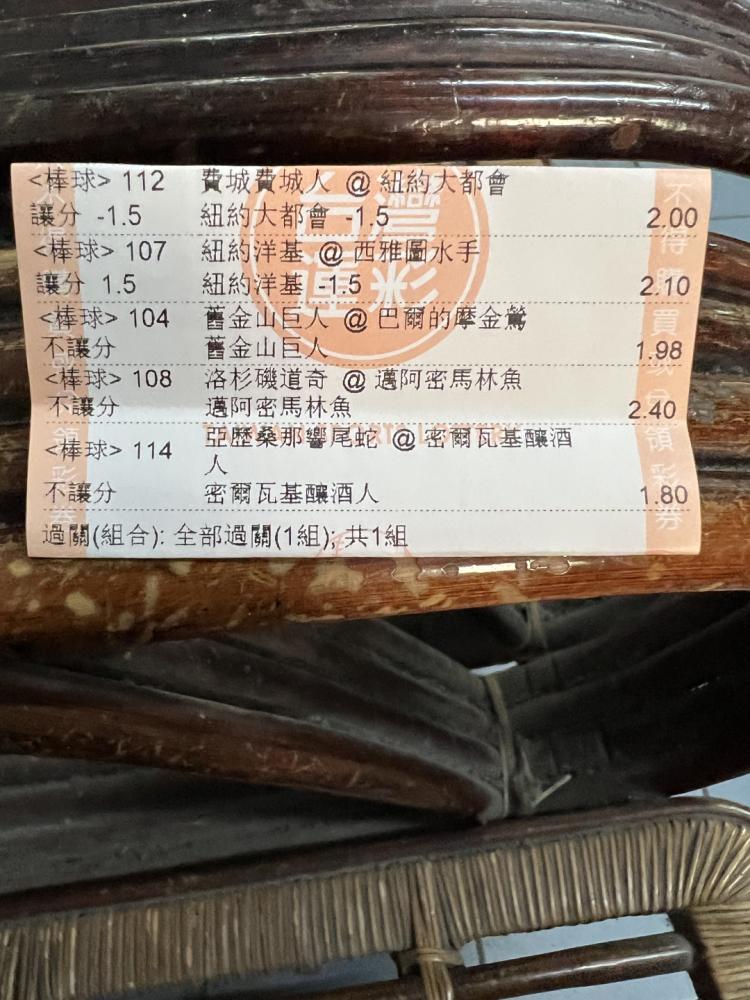 <棒球> 112 費城費城人 @ 紐約大都會
讓分 -1.5 紐約大都會 -1.5 2.00
<棒球> 107 紐約洋基 @ 西雅圖水手
讓分 1.5 紐約洋基 -1.5 2.10
<棒球> 104 舊金山巨人 @ 巴爾的摩金鶯
不讓分 舊金山巨人 1.98
<棒球> 108 洛杉磯道奇 @ 邁阿密馬林魚
不讓分 邁阿密馬林魚 2.40
<棒球> 114 亞歷桑那響尾蛇 @ 密爾瓦基釀酒
人
不讓分 密爾瓦基釀酒人 1.80
過關(組合): 全部過關(1組); 共1組
台灣運彩